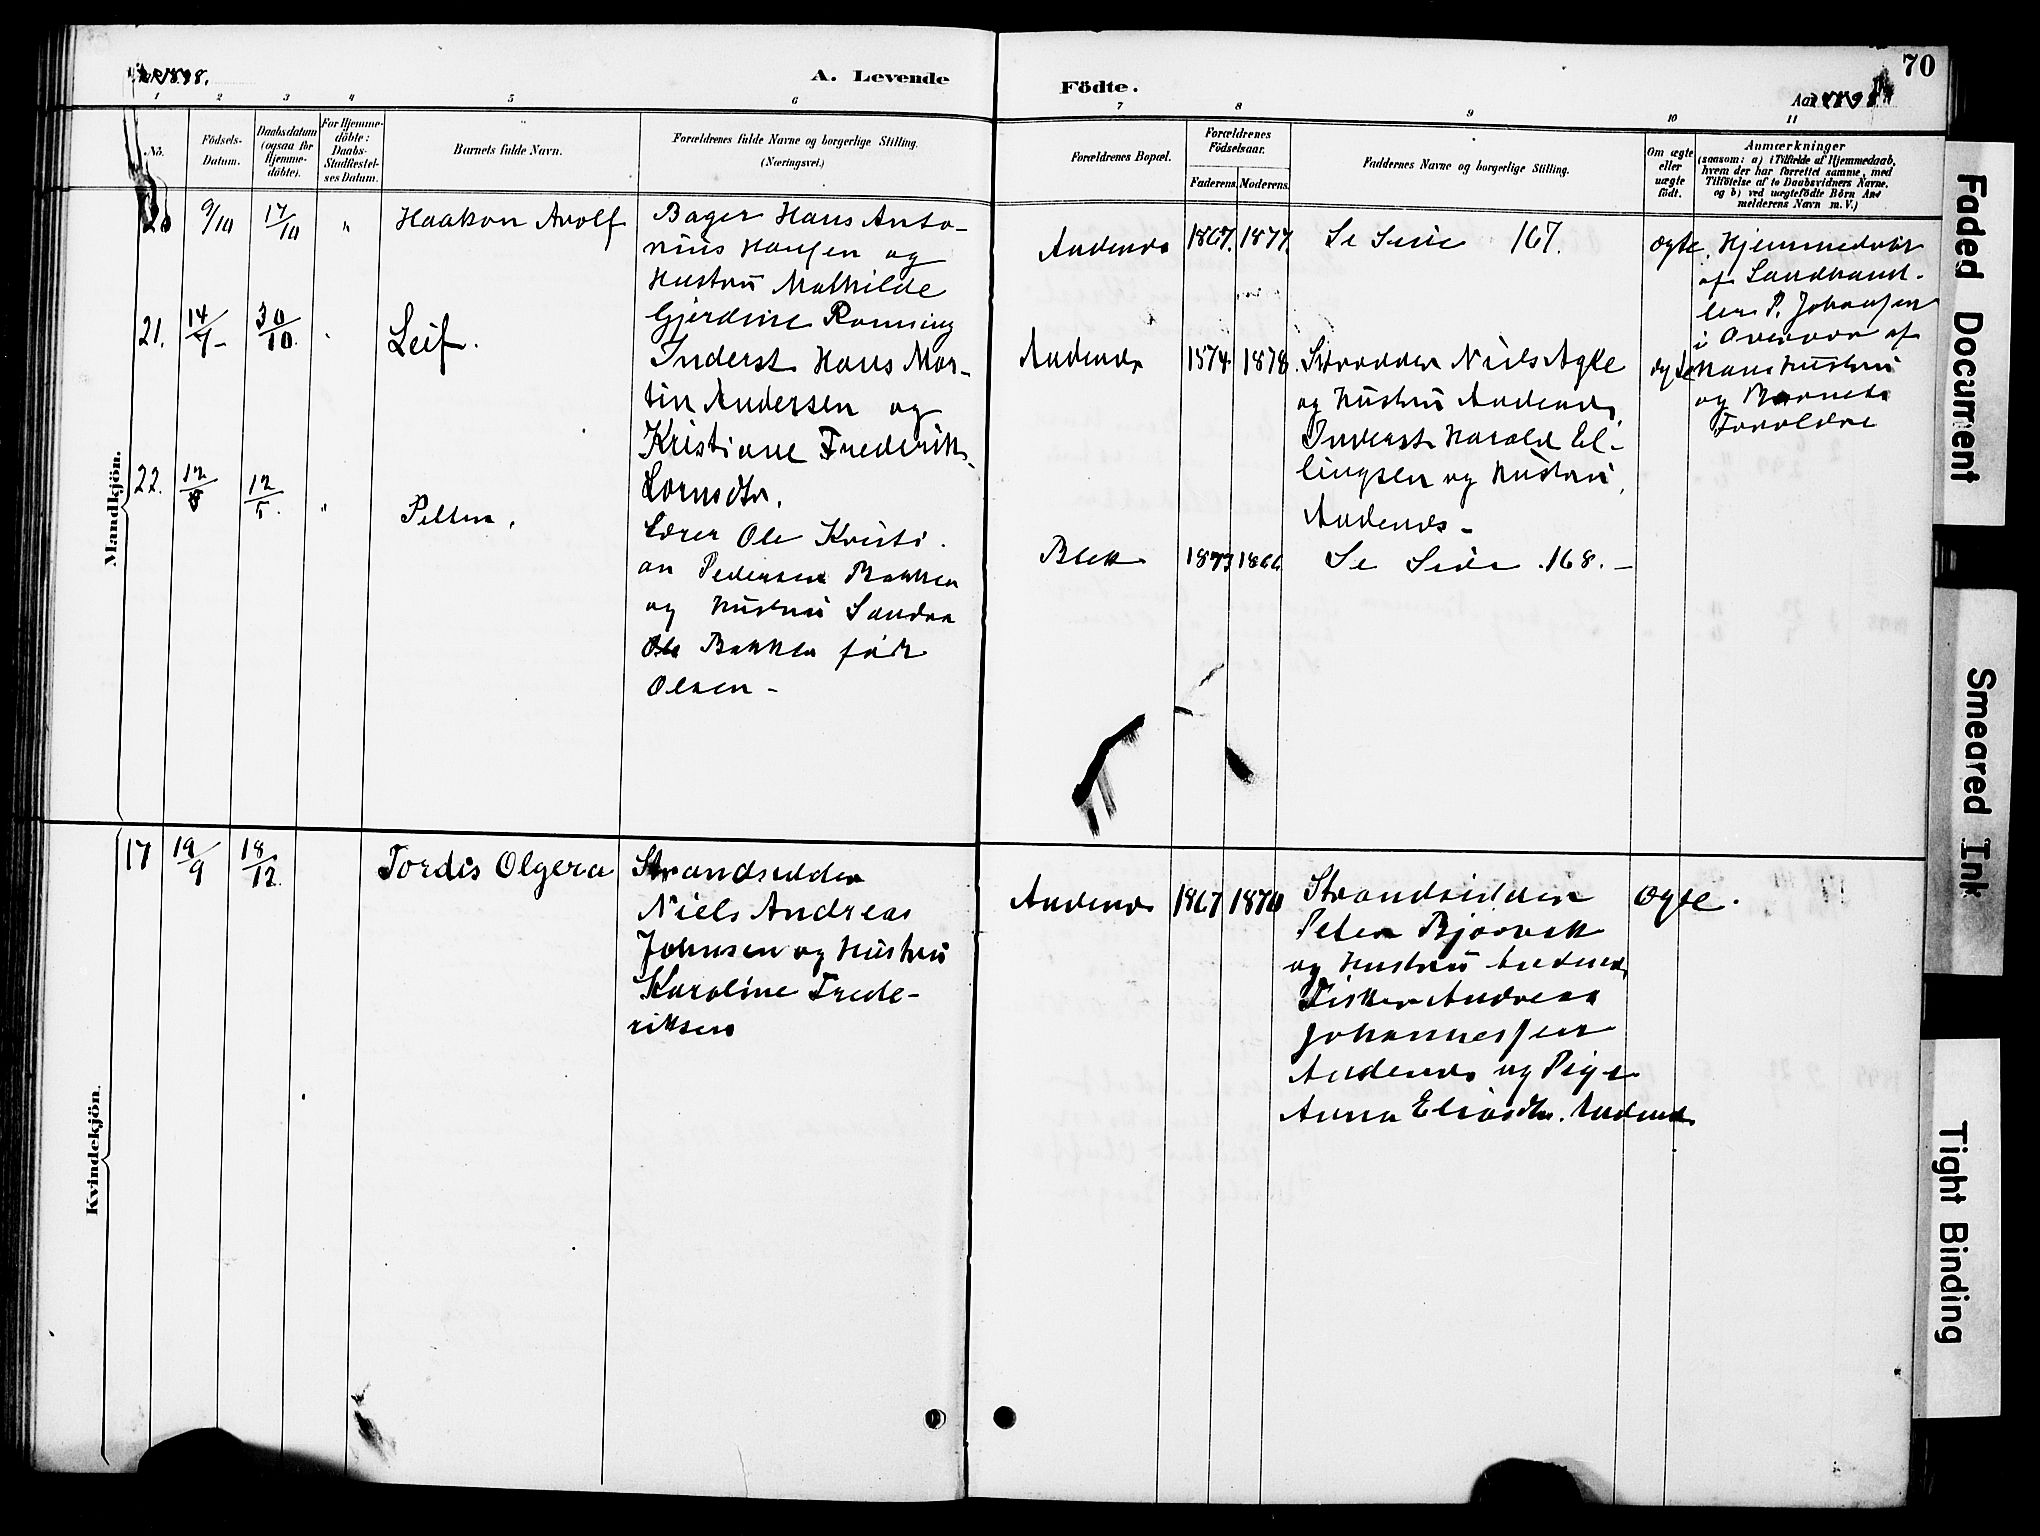 1898.
A. Levende
Födte.
Aar 1898.
70
1 2 3 4 5 6 7 8 9 10 11
No.
Födsels-
Datum.
Daabsdatum
(ogsaa for
Hjemme-
döbte).
For Hjemme-
döbte:
Daabs-
Stadfæstel-
ses Datum.
Barnets fulde Navn.
Forældrenes fulde Navne og borgerlige Stilling.
(Næringsvei.)
Forældrenes Bopæl.
Forældrenes
Födselsaar.
Faderens. Moderens.
Faddernes Navne og borgerlige Stilling.
Om ægte
eller
uægte
födt.
Anmærkninger
(saasom: a) i Tilfælde af Hjemmedaab,
hvem der har forrettet samme, med
Tilföielse af to Daabsvidners Navne,
og b) ved uægtefödte Börn An-
melderens Navn m. V.)
Mandkjön.
20 9/10 17/10 " Haakon Arolf
Bager Hans Anto-
nius Hansen og
Hustru Mathilde
Gjerdine Rønning
Andenes 1867. 1877. Se Side 167. ægte.
Hjemmedøbt
af Landhand-
ler P. Johansen
i Overvær af
Hans Hustru
og Barnets
Forældre
21. 14/7 30/10 Leif.
Inderst Hans Mar-
tin Andersen og
Kristiane Frederik
Andenes 1874 1878
Niels Agle
og Hustru Andenes,
Inderst Harald El-
lingsen og Hustru,
Andenes -
ægte
22. 12/5 "
Lærer Ole Kristi
an Pedersen Bakken
og Hustru Sandra
Bakken født
Olsen -
Bleik 1873 1866 Se Side 168. -
Kvindekjön.
17 19/9 18/12 Tordis Olgera
Strandsidder
Niels Andreas
Johnsen og Hustru
Karoline Frede-
riksen
Andenes 1867 1870
Strandsidder
Peter Bjørvik
og Hustru Andenes
Fisker Andreas
Johannessen
Andenes og Pige
Anna Eliasdtr. Andenes
Ægte.
Faded Document
Smeared Ink
Tight Binding